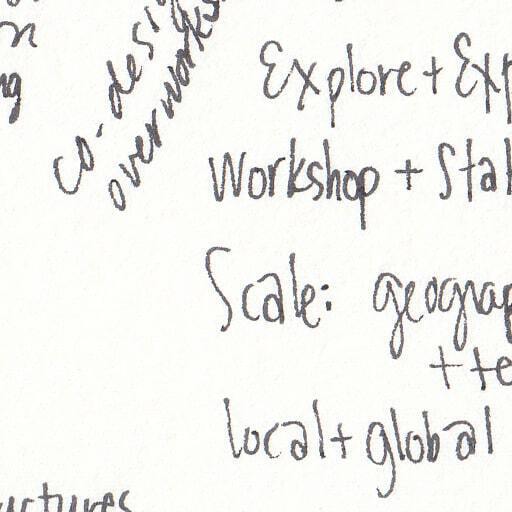 co-desig
overworks
Explore + Exp
Workshop + Stak
Scale: geograp
+ te
local + global
uctures